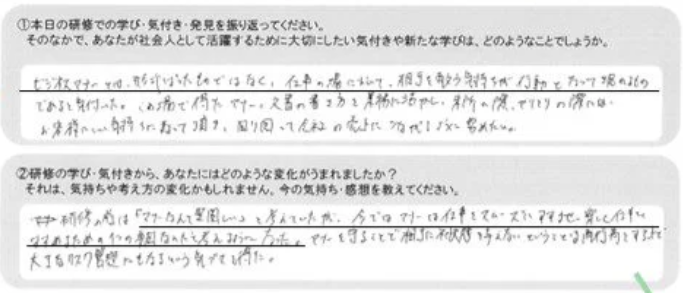 ①本日の研修での学び・気付き・発見を振り返ってください。
そのなかで、あなたが社会人として活躍するために大切にしたい気付きや新たな学びは、どのようなことでしょうか。
ビジネスマナーとは、形式ばったものではなく、仕事の場において、相手を敬う気持ちが行動となって現れるもの
であると気付いた。この場で得たマナー、文書の書き方を業務に活かし、来所の際、やりとりの際には
お客様にいい気持ちになって頂き、
②研修の学び・気付きから、あなたにはどのような変化がうまれましたか？
それは、気持ちや考え方の変化かもしれません。今の気持ち・感想を教えてください。
研修の前は「マナーなんて堅苦しい」と考えていたが、今ではマナーは仕事をスムーズに
すすめるための1つの要因なのだと考えるようになった。マナーを守ることで相手に不快感を与えないということは
大きなリスク管理にもなるという気づきも得た。